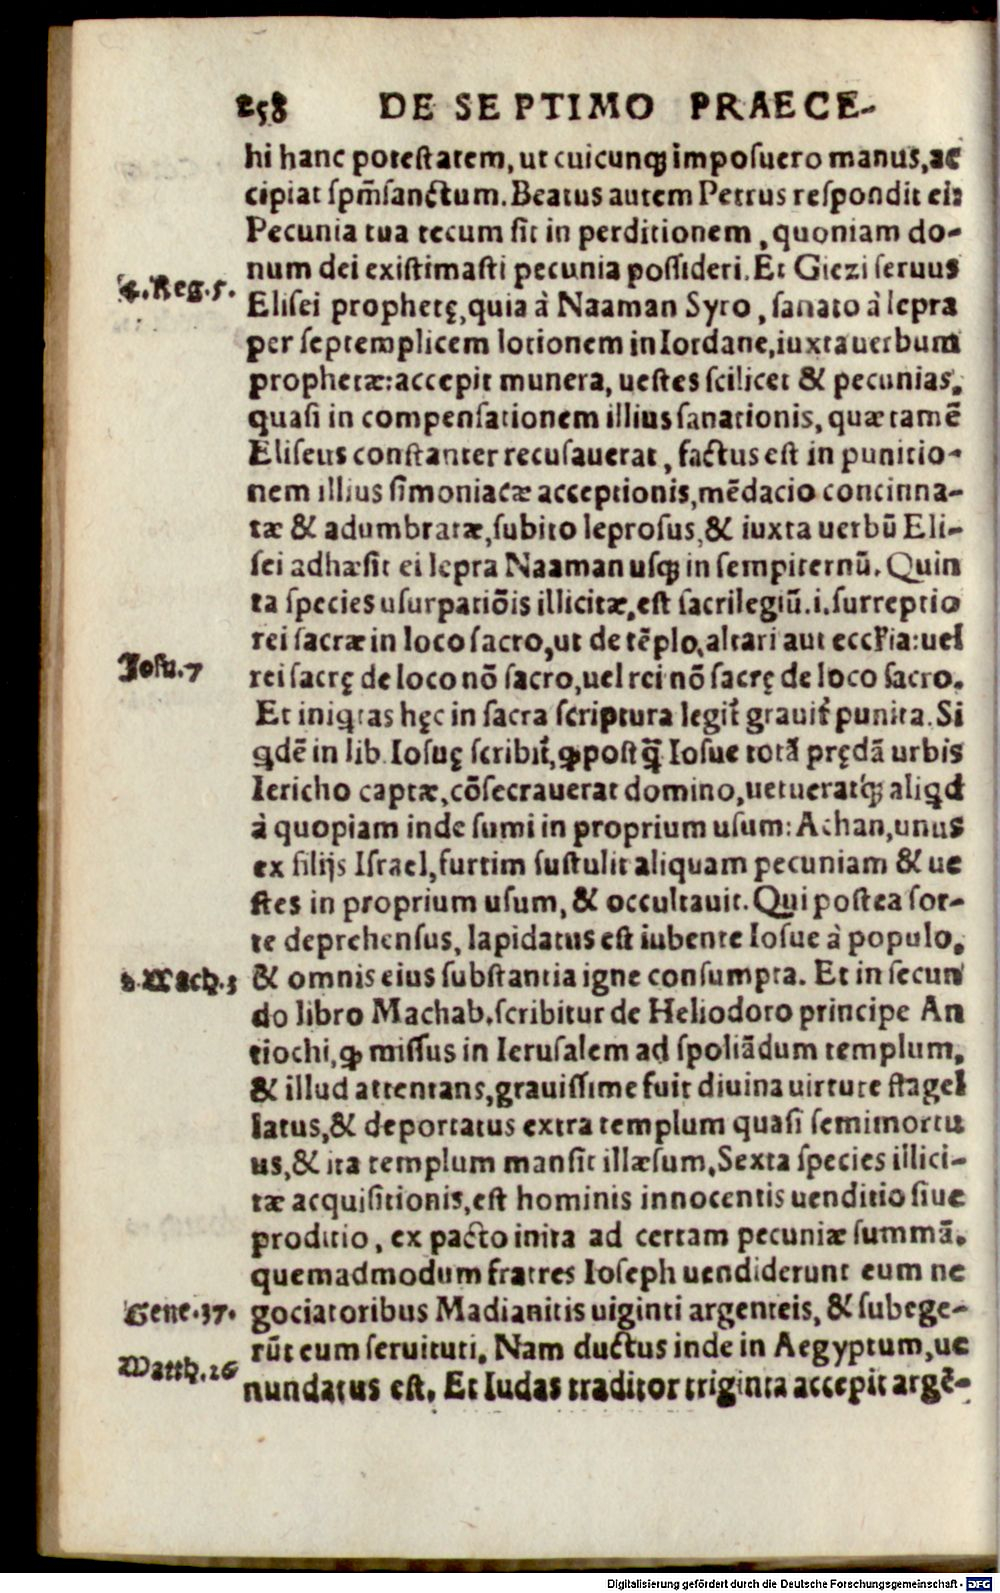 258 DE SEPTIMO PRAECE-
hi hanc potestatem, ut cuicunqꝫ imposuero manus, ac
cipiat spm̃sanctum. Beatus autem Petrus respondit ei:
Pecunia tua tecum sit in perditionem, quoniam do-
num dei existimasti pecunia possideri. Et Giezi seruus
4. Reg. 5.
Elisei prophetę, quia à Naaman Syro, sanato à lepra
per septemplicem lotionem in Iordane, iuxta uerbum
prophetæ: accepit munera, uestes scilicet & pecunias,
quasi in compensationem illius sanationis, quæ tamẽ
Eliseus constanter recusauerat, factus est in punitio-
nem illius simoniacæ acceptionis, mẽdacio concinna-
tæ & adumbratæ, subito leprosus, & iuxta uerbũ Eli-
sei adhæsit ei lepra Naaman usqꝫ in sempiternũ. Quin
ta species usurpatiõis illicitæ, est sacrilegiũ .i. surreptio
rei sacræ in loco sacro, ut de tẽplo, altari aut eccľia: uel
Iosu. 7
rei sacrę de loco nõ sacro, uel rei nõ sacrę de loco sacro.
Et iniqͥtas hęc in sacra scriptura legit᷑ grauit᷑ punita. Si
qͥdẽ in lib. Iosuę scribit᷑, ꝙ postq̃ Iosue totã prędã urbis
Iericho captæ, cõsecrauerat domino, uetueratqꝫ aliqͥd
à quopiam inde sumi in proprium usum: Achan, unus
ex filijs Israel, furtim sustulit aliquam pecuniam & ue
stes in proprium usum, & occultauit. Qui postea sor-
te deprehensus, lapidatus est iubente Iosue à populo,
2. Mach. 3
& omnis eius substantia igne consumpta. Et in secun
do libro Machab. scribitur de Heliodoro principe An
tiochi, ꝙ missus in Ierusalem ad spoliãdum templum,
& illud attentans, grauissime fuit diuina uirtute flagel
latus, & deportatus extra templum quasi semimortu
us, & ita templum mansit illæsum. Sexta species illici-
tæ acquisitionis, est hominis innocentis uenditio siue
proditio, ex pacto inita ad certam pecuniæ summã.
quemadmodum fratres Ioseph uendiderunt eum ne
Gene. 37.
gociatoribus Madianitis uiginti argenteis, & subege-
rũt eum seruituti. Nam ductus inde in Aegyptum, ue
Matth. 26
nundatus est. Et Iudas traditor triginta accepit argẽ-
Digitalisierung gefördert durch die Deutsche Forschungsgemeinschaft - DFG